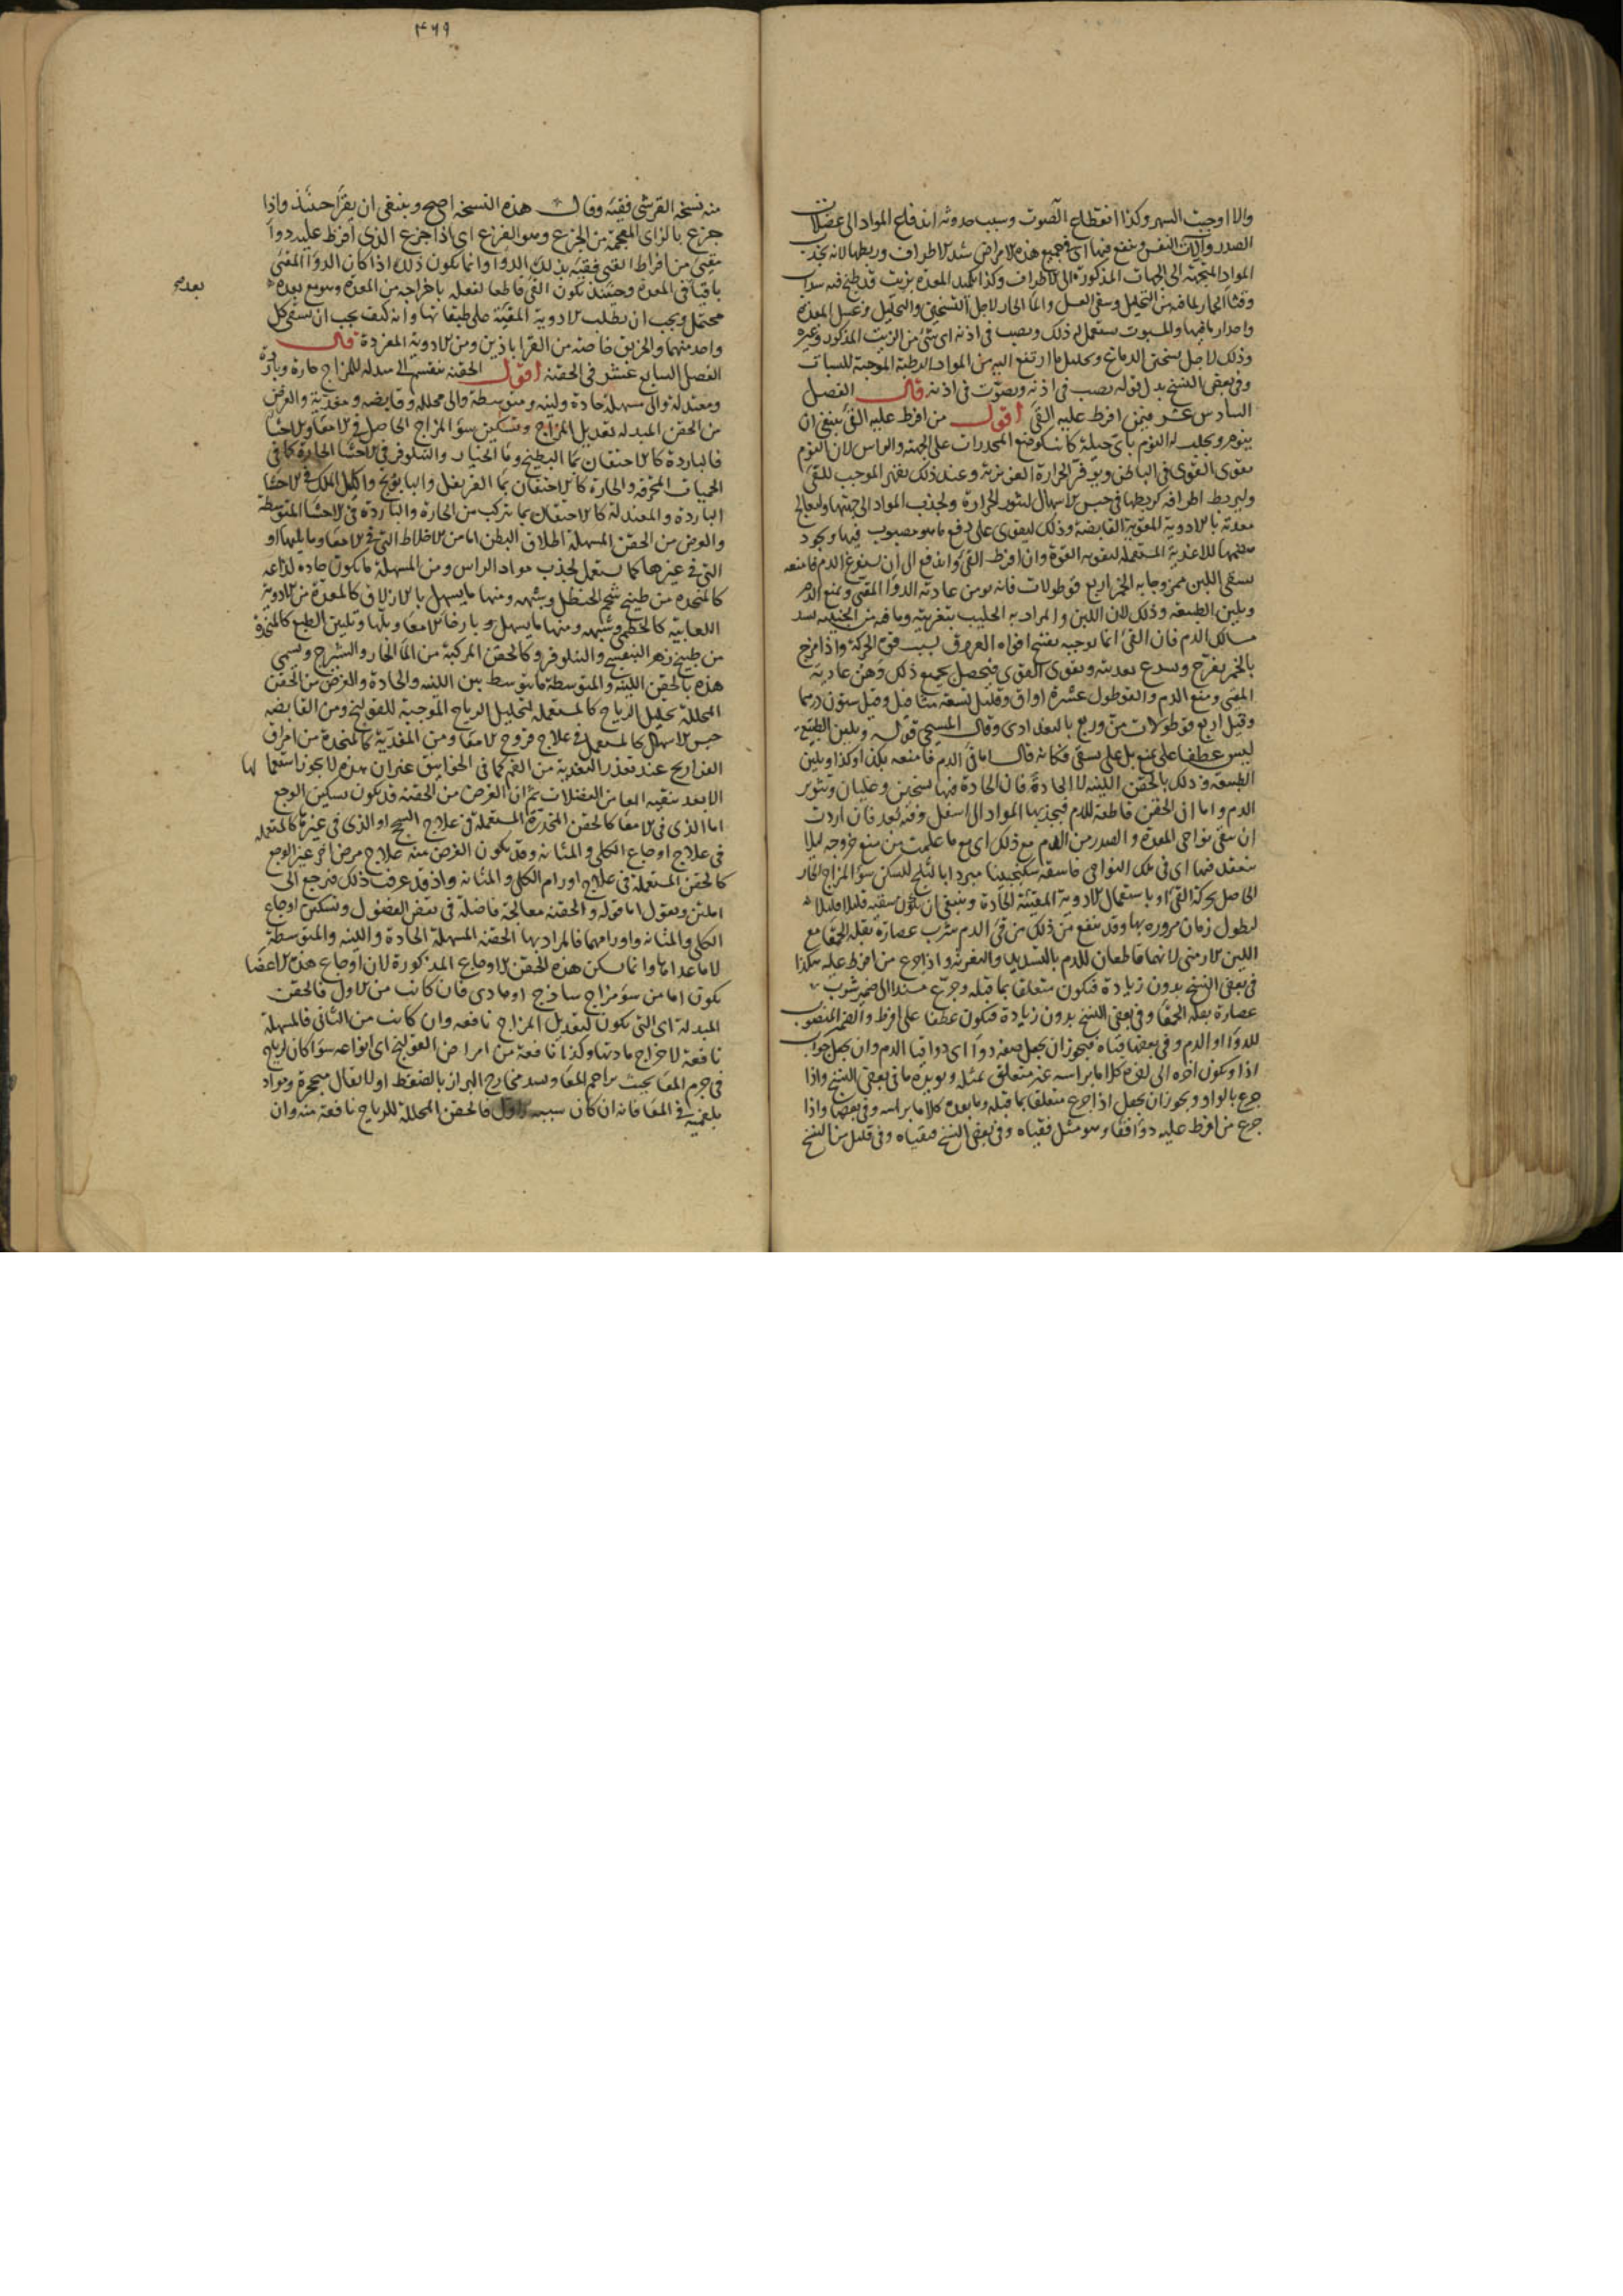 والا اوجبت السهر وكذا انقطاع الصوت وسبب حدوثه اندفاع المواد الى عضلات
الصدر وآلات النفس وينفع فيها اى فى جميع هذه الامراض شد الاطراف وربطها لانه يجذب
المواد المتجهة الى الجهات المذكورة الى الاطراف وكذا تكميد المعدة بزيت قد طبخ فيه سداب
وقثا الحمار لما فيه من التحليل وسقى العسل والما الحار لاجل التسخين والتحليل وغسل المعدة
واحدار ما فيها والمسبوت يستعمل له ذلك ويصب فى اذنه اى شئ من الزيت المذكور وغيره
وذلك لاجل تسخين الدماغ وتحليل ما ارتفع اليه من المواد الرطبة الموجبة للسبات
وفى بعض النسخ بدل قوله يصب فى اذنه ويصوت فى اذنه قال الفصل
السادس عشر فيمن افرط عليه القئ اقول من افرط عليه القئ ينبغى ان
ينوم ويجلب له النوم باى حيلة كانت كوضع المخدرات على الجبهة والراس لان النوم
يقوى القوى فى الباطن ويوفر الحرارة الغريزية وعند ذلك يقهر الموجب للقئ
وليربط اطرافه كربطها فى حبس الاسهال لنشور الحرارة ولجذب المواد الى جهتها وليعالج
معدته بالادوية المقوية القابضة وذلك ليقوى على دفع ما هو مصبوب فيها ويجود
هضمها للاغذية المستعملة لتقوية القوة وان افرط القئ واندفع الى ان يستفرغ الدم فامنعه
بسقى اللبن ممزوجا به الخمر اربع قوطولات فانه يوهن عادية الدوا المقئ ويمنع الدم
ويلين الطبيعة وذلك لان اللبن والمراد به الحليب بتغريته وما فيه من الجبنية يسد
مسالك الدم فان القئ انما يوجبه بفتح افواه العروق لسبب قوة الحركة واذا مزج
بالخمر يفرح ويسرع تغذيته ويقوى القوى فيحصل بجميع ذلك وهن عادية
المقئ ومنع الدم والقوطول عشرة اواق وقليل تسعة مثاقيل وقيل ستون درهما
وقيل اربع قوطولات من وربع بالبغدادى وقال المسيحى قوله ويلين الطبيع
ليس عطفا على يمنع بل على يسقى فكانه قال اما قئ الدم فامنعه بكذا وكذا ويلين
الطبيعة وذلك بالحقن اللينة لا الحادة فان الحادة فيها تسخين وغليان وتثوير
الدم واما ان الحقن قاطعة للدم فبجذبها المواد الى اسفل وفيه بعد فان اردت
ان تنقى نواحى المعدة والصدر من الدم مع ذلك اى مع ما علمت من منع خروجه ليلا
ينعقد فيها اى فى تلك النواحى فاسقه سكنجبينا مبردا بالثلج لتسكن سؤ المزاج الحار
الحاصل بحركة القئ او باستعمال الادوية المقيئة الحادة وينبغى ان يكون سقيه قليلا قليلا
ليطول زمان مروره بها وقد ينفع من ذلك من قئ الدم شرب عصارة بقلة الحمقا مع
اللبن الارمنى لانهما قاطعان للدم بالتسديد والتغرية واذا جرع من افرط عليه هكذا
فى بعض النسخ بدون زيادة فيكون متعلقا بما قبله وجرع مسندا الى ضمير شرب
عصارة بقلة الحمقا وفى بعض النسخ بدون زيادة فيكون عطفا على افرط والضمير المنصوب
للدوا او الدم وفى بعضها قياه فيجوز ان يجعل صفة دوا اى دوا قيا الدم وان يجعل جواب
اذا ويكون اخره الى لغوه كلاما براسه غير متعلق بمثله ويؤيده ما فى بعض النسخ واذا
جرع بالواو ويجوز ان يجعل اذا جرع متعلقا بما قبله وما بعده كلاما براسه وفى بعضها واذا
جرع من افرط عليه دوا فقا وهو مثل فقياه وفى بعض النسخ فيقياه وفى قليل من النسخ
۴۶۹
منه نسخة القرشى فقيئه وقال هذه النسخة اصح وينبغى ان يقرا حينئذ واذا
جزع بالزاى المعجمة من الجزع وهو الفزع اى اذا جزع الذى افرط عليه دوا
مقيئ من افراط القئ فقيئه بذلك الدوا وانما يكون ذلك اذا كان الدوا المقئ
باقيا فى المعدة وحينئذ يكون القئ قاطعا لفعله باخراجه من المعدة وهو مع بعده
بعده
محتمل ويجب ان يطلب الادوية المقيئة على طبقاتها وانه كيف يجب ان يسقى كل
واحد منهما والخربق خاصة من القراباذين ومن الادوية المفردة قال
الفصل السابع عشر فى الحقنة اقول الحقنة تنقسم الى مبدلة للمزاج حارة وباردة
ومعتدلة والى مسهلة حادة ولينة ومتوسطة والى محللة وقابضة ومغذية والغرض
من الحقن المبدلة تعديل المزاج وتسكين سؤ المزاج الحاصل فى الامعا والاحشا
فالباردة كالاحتقان بما البطيخ وما الخيار والنيلوفر فى الاحشا الحارة كما فى
الحميات المحرقة والحارة كالاحتقان بما القرنفل والبابونج واكليل الملك فى الاحشا
الباردة والمعتدلة كالاحتقان بما تركب من الحارة والباردة فى الاحشا المتوسطة
والغرض من الحقن المسهلة اطلاق البطن اما من الاخلاط التى فى الامعا وما يليها او
التى فى غيرها كما يستعمل لجذب مواد الراس ومن المسهلة ما يكون حادة لذاعة
كالمتخذة من طبيخ شحم الحنظل وشبهه ومنها ما يسهل بالازلاق كالمتخذة من الادوية
اللعابية كالخطمى وشبهه ومنها ما يسهل بارخا الامعا وبلها وتليين الطبع كالمتخذة
من طبيخ زهر البنفسج والنيلوفر وكالحقن المركبة من الما الحار والشيرج وتسمى
هذه بالحقن اللينة والمتوسطة ما يتوسط بين اللينة والحادة والغرض من الحقن
المحللة تحليل الرياح كالمستعملة لتحليل الرياح الموجبة للقولنج ومن القابضة
حبس الاسهال كالمستعمل فى علاج قروح الامعا ومن المغذية كالمتخذة من امراق
الفراريج عند تعذر التغذية من الفم كما فى الخوانيق غير ان هذه لا يجوز استعمالها
الا بعد تنقية المعا من الفضلات ثم ان الغرض من الحقنة قد يكون تسكين الوجع
اما الذى فى الامعا كالحقن المخدرة المستعملة فى علاج السحج او الذى فى غيرها كالمستعملة
فى علاج اوجاع الكلى والمثانة وقد يكون الغرض منه علاج مرض اخر غير الوجع
كالحقن المستعملة فى علاج اورام الكلى والمثانة واذ قد عرفت ذلك فنرجع الى
المتن ونقول اما قوله والحقنة معالجة فاضلة فى نفض الفضول وتسكين اوجاع
الكلى والمثانة واورامهما فالمراد بها الحقنة المسهلة الحادة واللينة والمتوسطة
لا ما عداها وانما تسكن هذه الحقن الاوجاع المذكورة لان اوجاع هذه الاعضا
يكون اما من سؤ مزاج ساذج او مادى فان كانت من الاول فالحقن
المبدلة اى التى يكون لتعديل المزاج نافعة وان كانت من الثانى فالمسهلة
نافعة لاخراج مادتها وكذا نافعة من امراض القولنج اى انواعه سوا كان لريح
فى جرم المعا بحيث يزاحم المعا ويسد مخارج البراز بالضغط او لاثفال متحجرة ومواد
بلغمية فى المعا فانه ان كان سببه الاول فالحقن المحللة للرياح نافعة منه وان